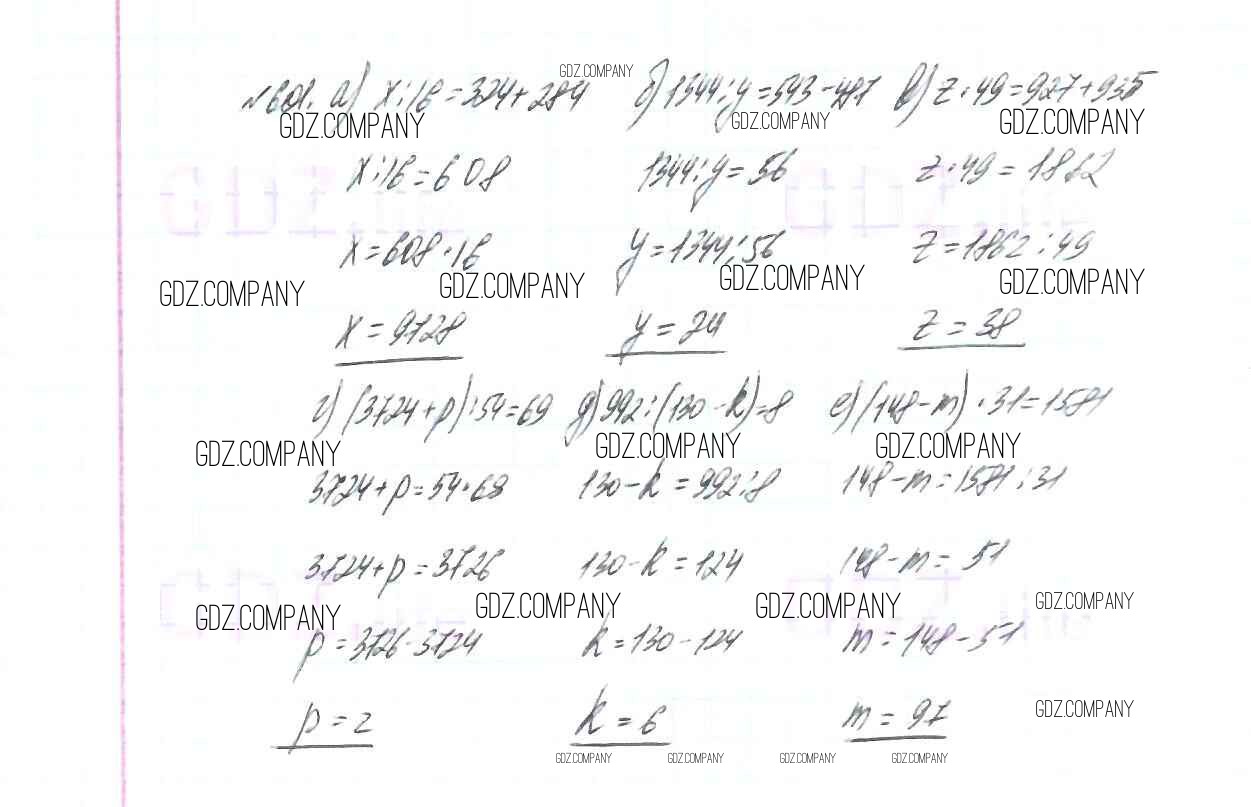 №601. а) x:16=324+284 б) 1344:y=543-487 в) z·49=927+935
x:16=608 1344:y=56 z·49=1862
x=608·16 y=1344:56 z=1862:49
x=9728 y=24 z=38
г) (3724+p):54=69 д) 992:(130-k)=8 е) (148-m)·31=1581
3724+p=54·69 130-k=992:8 148-m=1581:31
3724+p=3726 130-k=124 148-m=51
p=3726-3724 k=130-124 m=148-51
p=2 k=6 m=97
GDZ.COMPANY
GDZ.COMPANY GDZ.COMPANY GDZ.COMPANY
GDZ.COMPANY GDZ.COMPANY GDZ.COMPANY GDZ.COMPANY
GDZ.COMPANY GDZ.COMPANY GDZ.COMPANY
GDZ.COMPANY GDZ.COMPANY GDZ.COMPANY GDZ.COMPANY
GDZ.COMPANY
GDZ.COMPANY GDZ.COMPANY GDZ.COMPANY GDZ.COMPANY